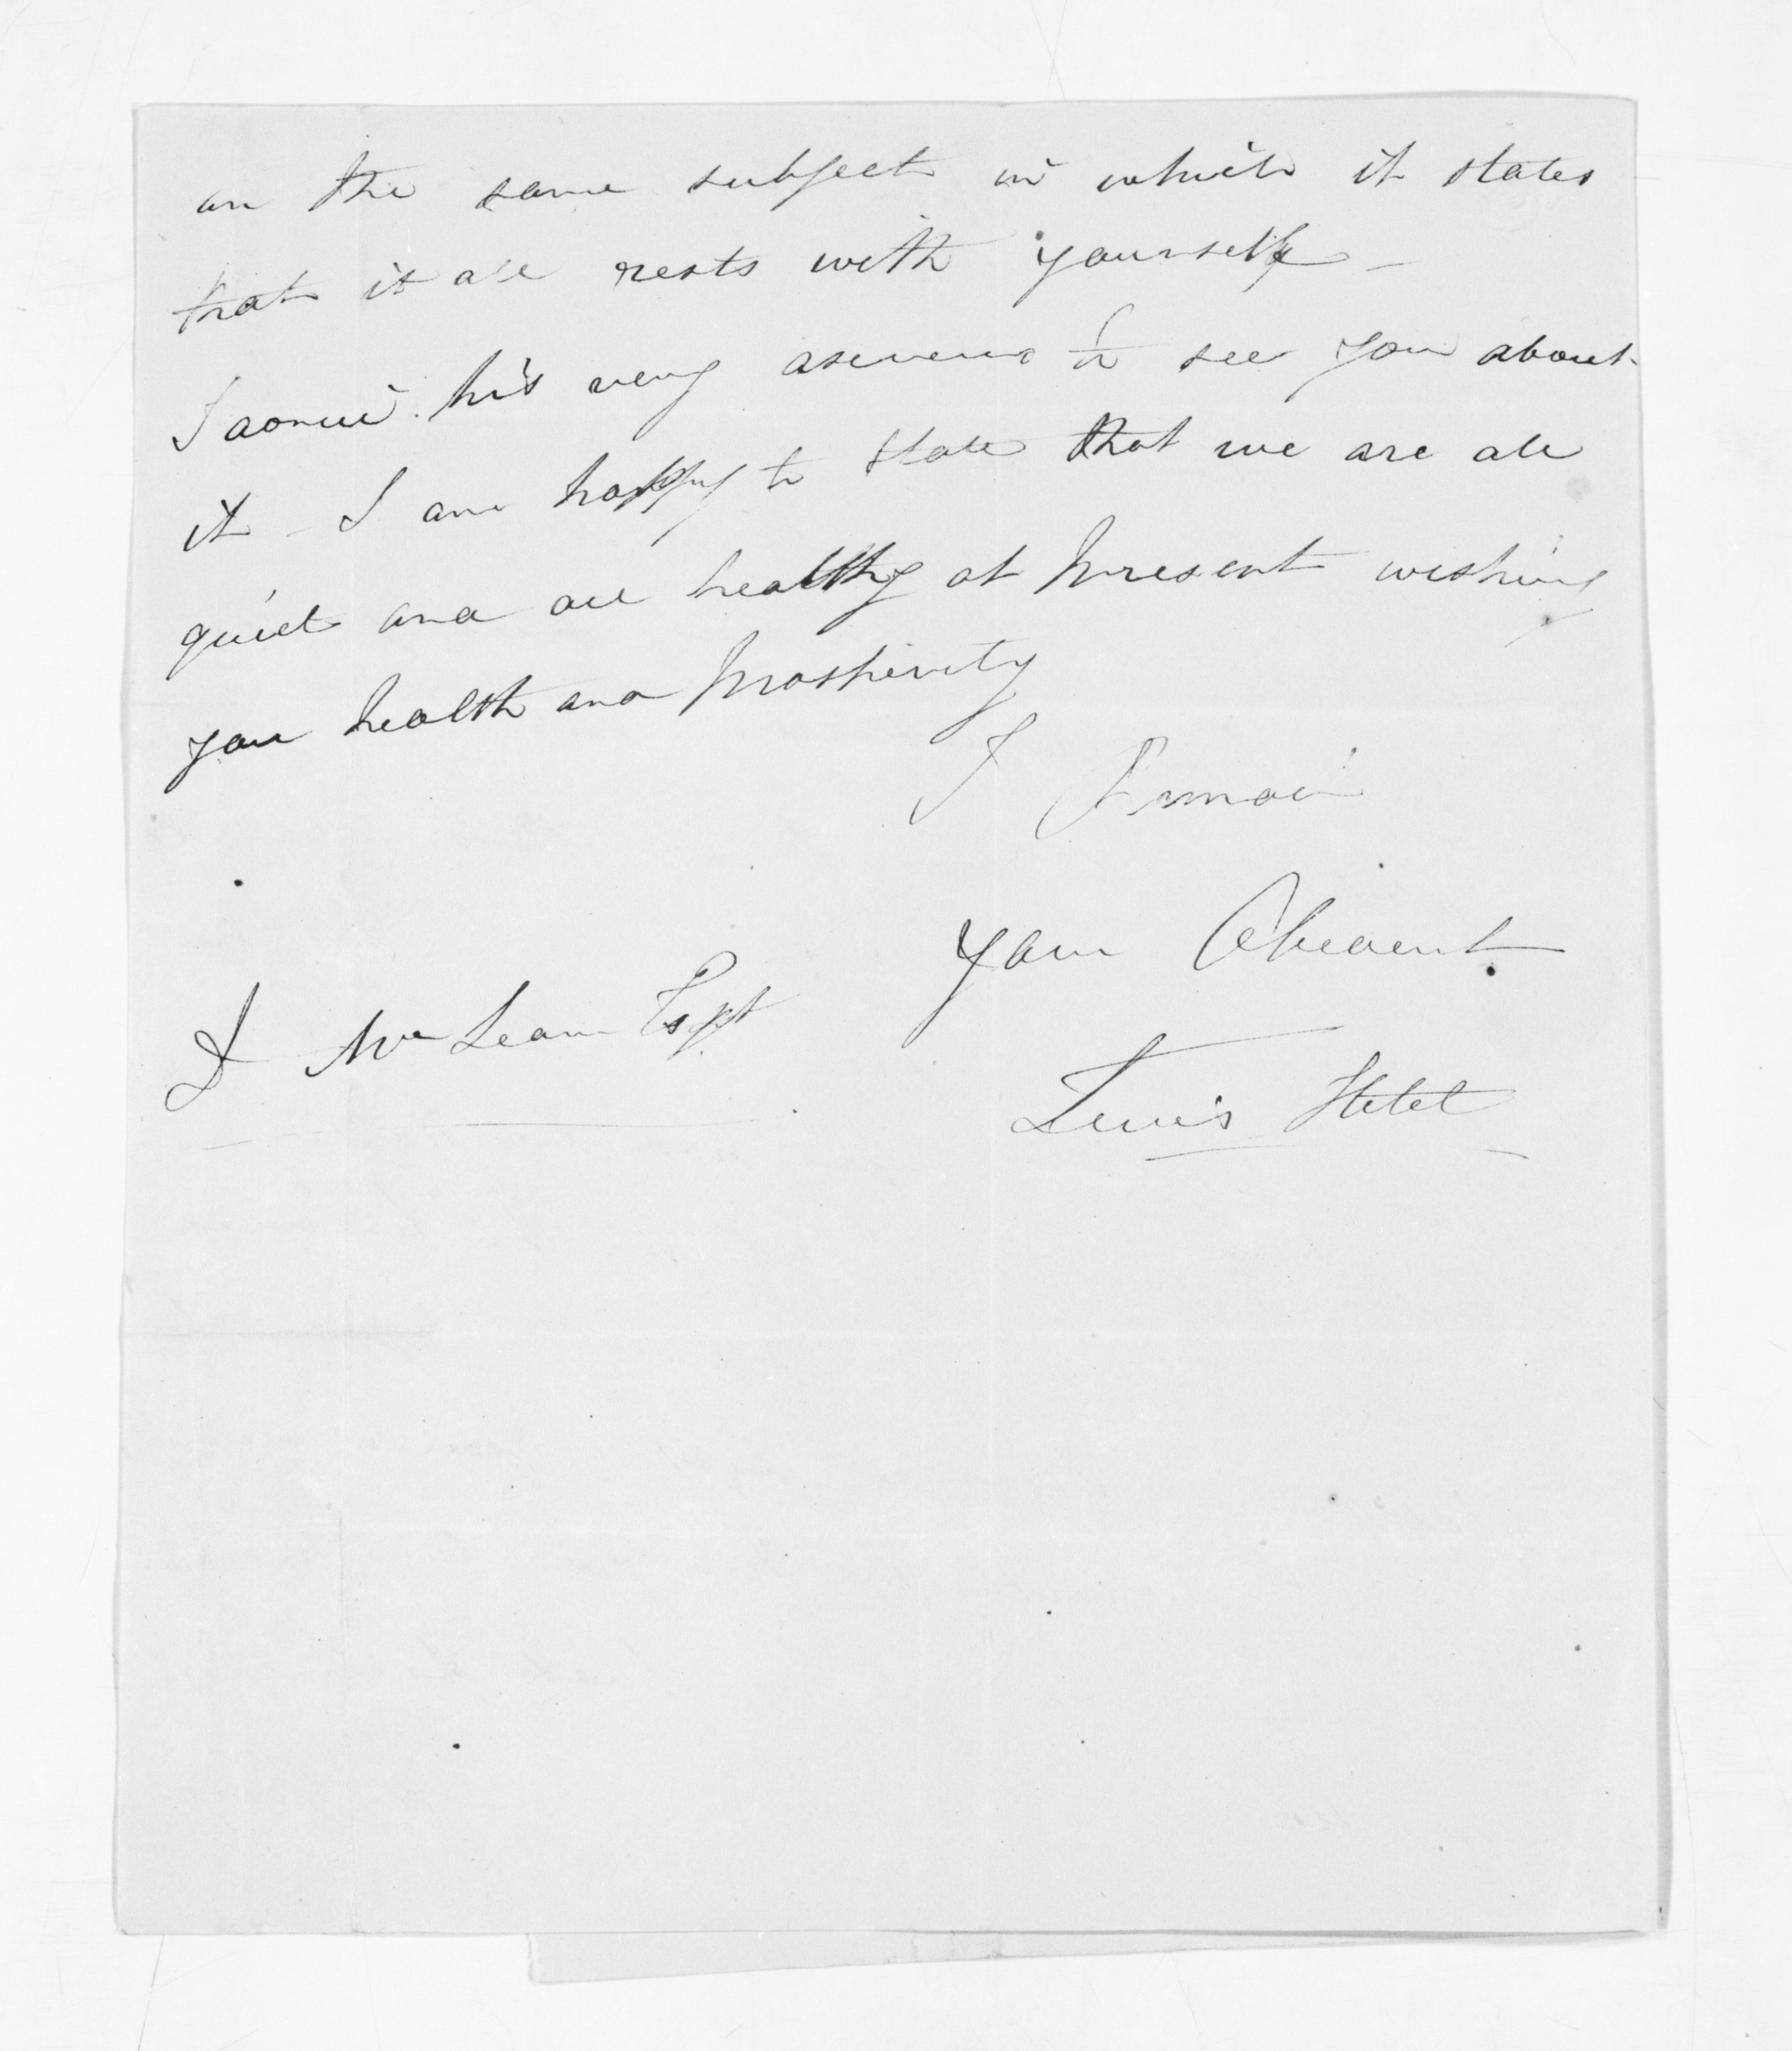 on the same subject in which it states
that it all rests with yourself –
his very to see you about
it – I am happy to state that we are all
quiet and all healthy at present wishing
you health and prosperity
I Remain
your Obedient
Mc Lean Esqr
Lewis Hetet